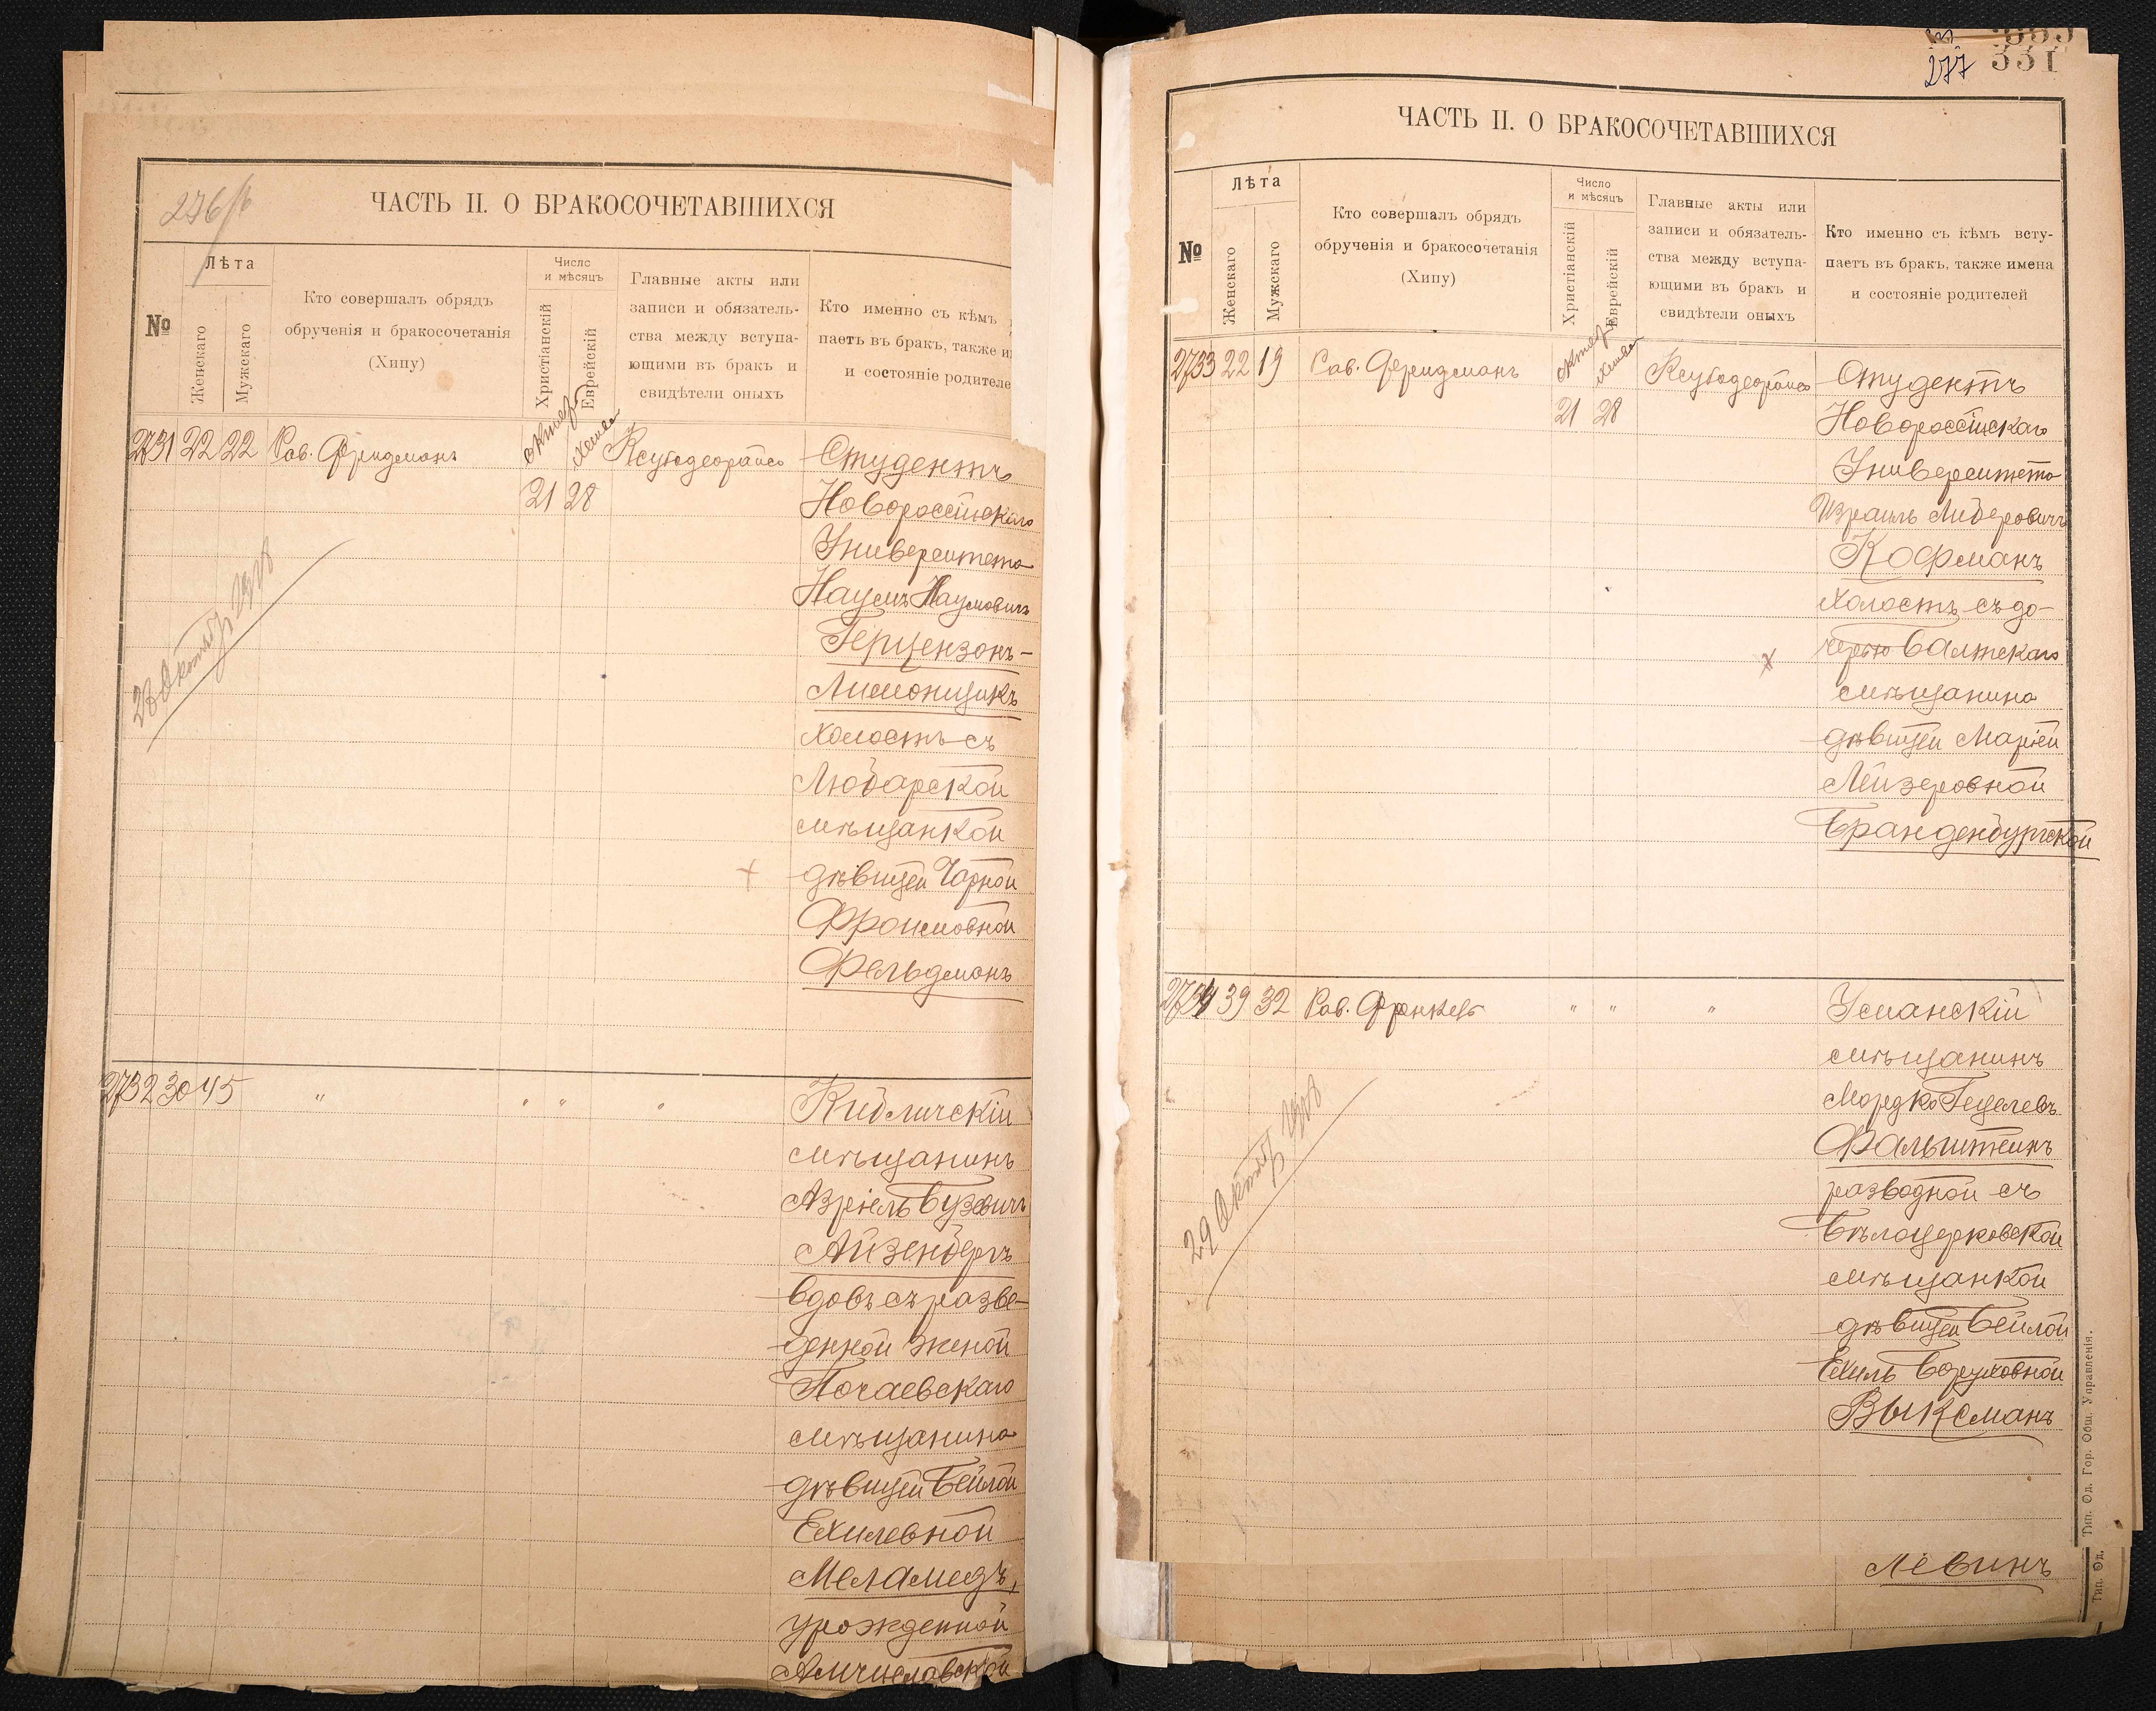 276/b
ЧАСТЬ II. О БРАКОСОЧЕТАВШИХСЯ
№
Лѣта
Женскаго
Мужскаго
Кто совершалъ обрядъ
обрученія и бракосочетанія
(Хипу)
Число
и мѣсяцъ
Христіанскій
Еврейскій
Главные акты или
записи и обязатель-
ства между вступа-
ющими въ бракъ и
свидѣтели оныхъ
Кто именно съ кѣмъ
паетъ въ бракъ, также и
и состояніе родителе
2731 22 22 Рав. Фридманъ
21 28
Студентъ
Новороссійскаго
Университета
Наумъ Наумовичъ
Герцензонъ-
Лимонщикъ
холостъ съ
Любарской
мѣщанкой
дѣвицей Чарной
Фроимовной
Фельдманъ
28 Октяб 1918
2732 30 45 " " " "
Кибличскій
мѣщанинъ
Азріель Бузевичъ
Айзенбергъ
вдовъ съ разве-
денной женой
Почаевскаго
мѣщанина
дѣвицей Бейлой
Ехилевной
Меламедъ,
урожденной
277
331
ЧАСТЬ II. О БРАКОСОЧЕТАВШИХСЯ
№
Лѣта
Женскаго
Мужскаго
Кто совершалъ обрядъ
обрученія и бракосочетанія
(Хипу)
Число
и мѣсяцъ
Христіанскій
Еврейскій
Главные акты или
записи и обязатель-
ства между вступа-
ющими въ бракъ и
свидѣтели оныхъ
Кто именно съ кѣмъ всту-
паетъ въ бракъ, также имена
и состояніе родителей
2733 22 19 Рав. Фридманъ
21 28
Студентъ
Новороссійскаго
Университета
Израиль Либеровичъ
Кофманъ
холостъ съ до-
черью Балтскаго
мѣщанина
дѣвицей Маріей
Лейзеровной
Бранденбургской
2734 39 32 Рав. Френкель " " "
Уманскій
мѣщанинъ
Мордко Гецелевъ
Фальштейнъ
разводной съ
Бѣлоцерковской
мѣщанкой
дѣвицей Бейлой
Ехиль Боруховной
Выксманъ
29 Октяб 1918
Левинъ
Тип. Од. Гор. Общ. Управленія.
Тип. Од.